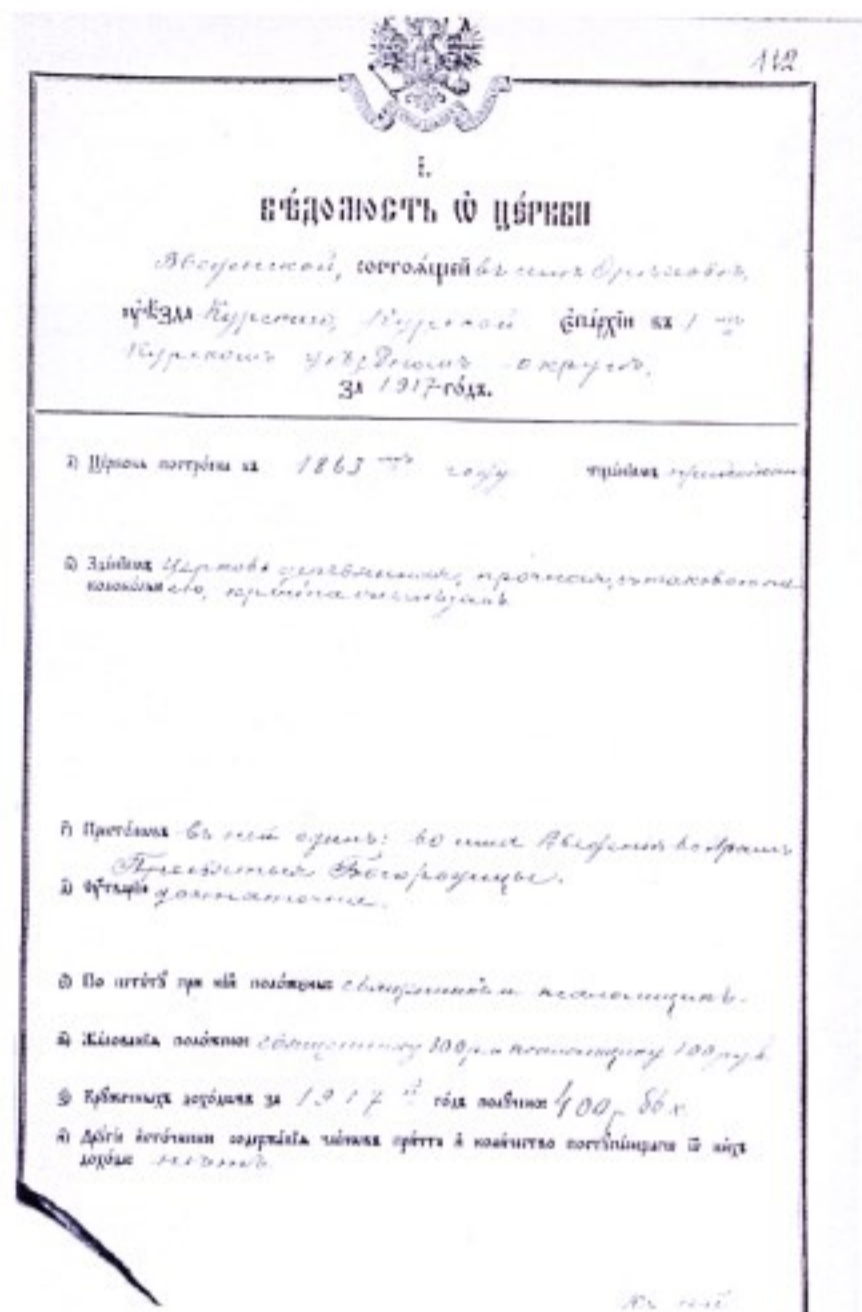 112
І.
Вѣ́домость ѡ҆ це́ркви
Введенской, состоѧ́щей въ
ᲂу҆ѣ́зда Курскаго, Курской є҆па́рхїи въ 1 мъ
Курскомъ уѣздномъ округѣ,
За 1917 го́дъ.
а҃) Це́рковь постро́ена въ 1863 году тща́нїемъ прихожанъ
в҃) Зда́нїемъ церковь деревянная, прочная, съ таковою же
колоко́льнею, крыта
г҃) Престо́ловъ въ ней одинъ: во имя Введенія во храмъ
Пресвятыя Богородицы.
д҃) Оу҆́тварїю достаточна.
є҃) По шта́тꙋ при не́й поло́жены священникъ и псаломщикъ.
ѕ҃) Жа́лованїѧ поло́жено священнику 300 р. и псаломщику 100 руб.
з҃) Крꙋ́жечныхъ дохо́довъ за 1917 й го́дъ полꙋ́чено 400 р. 66 к.
и҃) Дрꙋгі́е и҆сто́чники содержа́нїѧ чле́новъ при́чта и҆ коли́чество постꙋпи́вшагѡ ѿ ни́хъ
дохо́да